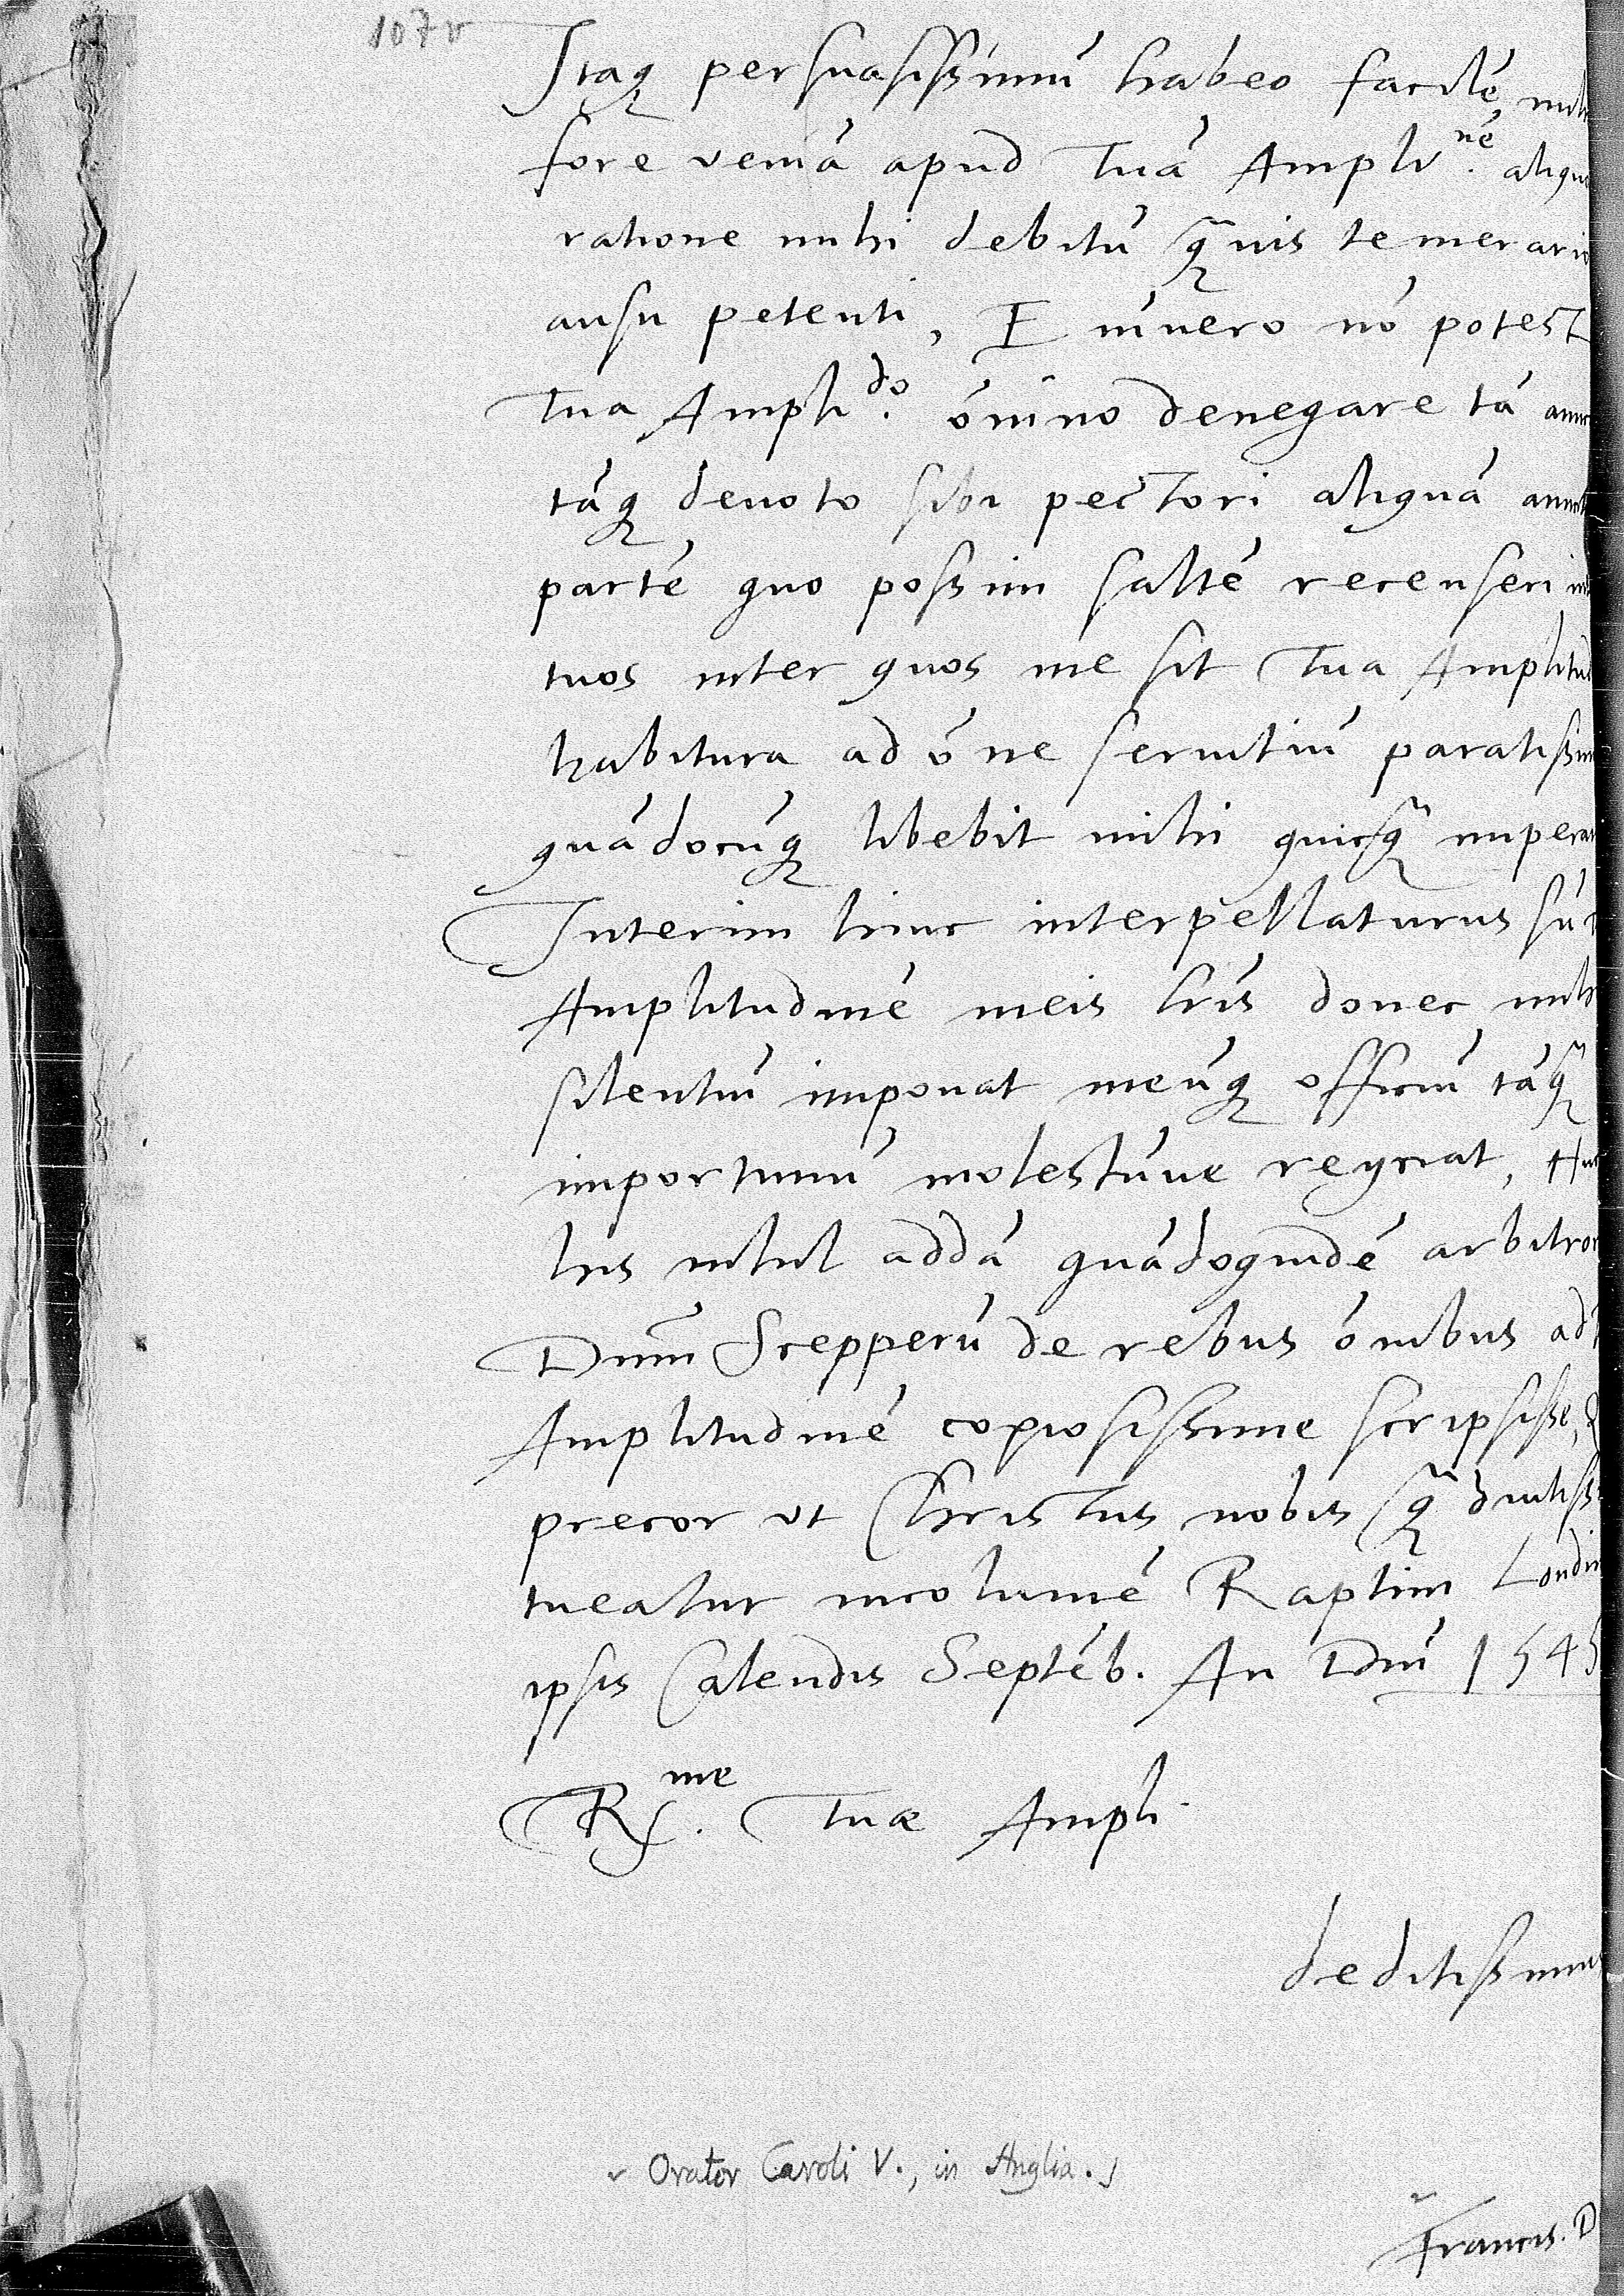 107v
Itaq persuasissimū habeo facilē
fore veniā apud Tuā Ampli.nē
ratione mihi debitū q̃uis temerario
ausu petenti, Enīuero nō potest
Tua Ampli.do ōnino denegare tā
tāq deuoto sibi pectori aliquā
partē quo possim saltē recenseri
tuos inter quos me sit Tua Amplitud
habitura ad ōne seruitiū paratissim
quādocūq libebit mihi quicq̃ impera
Interim hinc interpellaturus sū
Amplitudinē meis lris donec mihi
silentiū imponat meūq officiū tāq̃
importunū molestūue reijciat,
his nihil addā quādoquidē arbitror
Dnum̄ Scepperū de rebus ōnibus ad
Amplitudinē copiosissime scripsisse,
precor vt Christus nobis q̃ diutiss
tueatur incolumē Raptim Londin
ipsis Calendis Septēb. An Dnī 1545
R.me Tuæ Ampli.
deditissimus
Orator Caroli V., in Anglia.
Francis. D